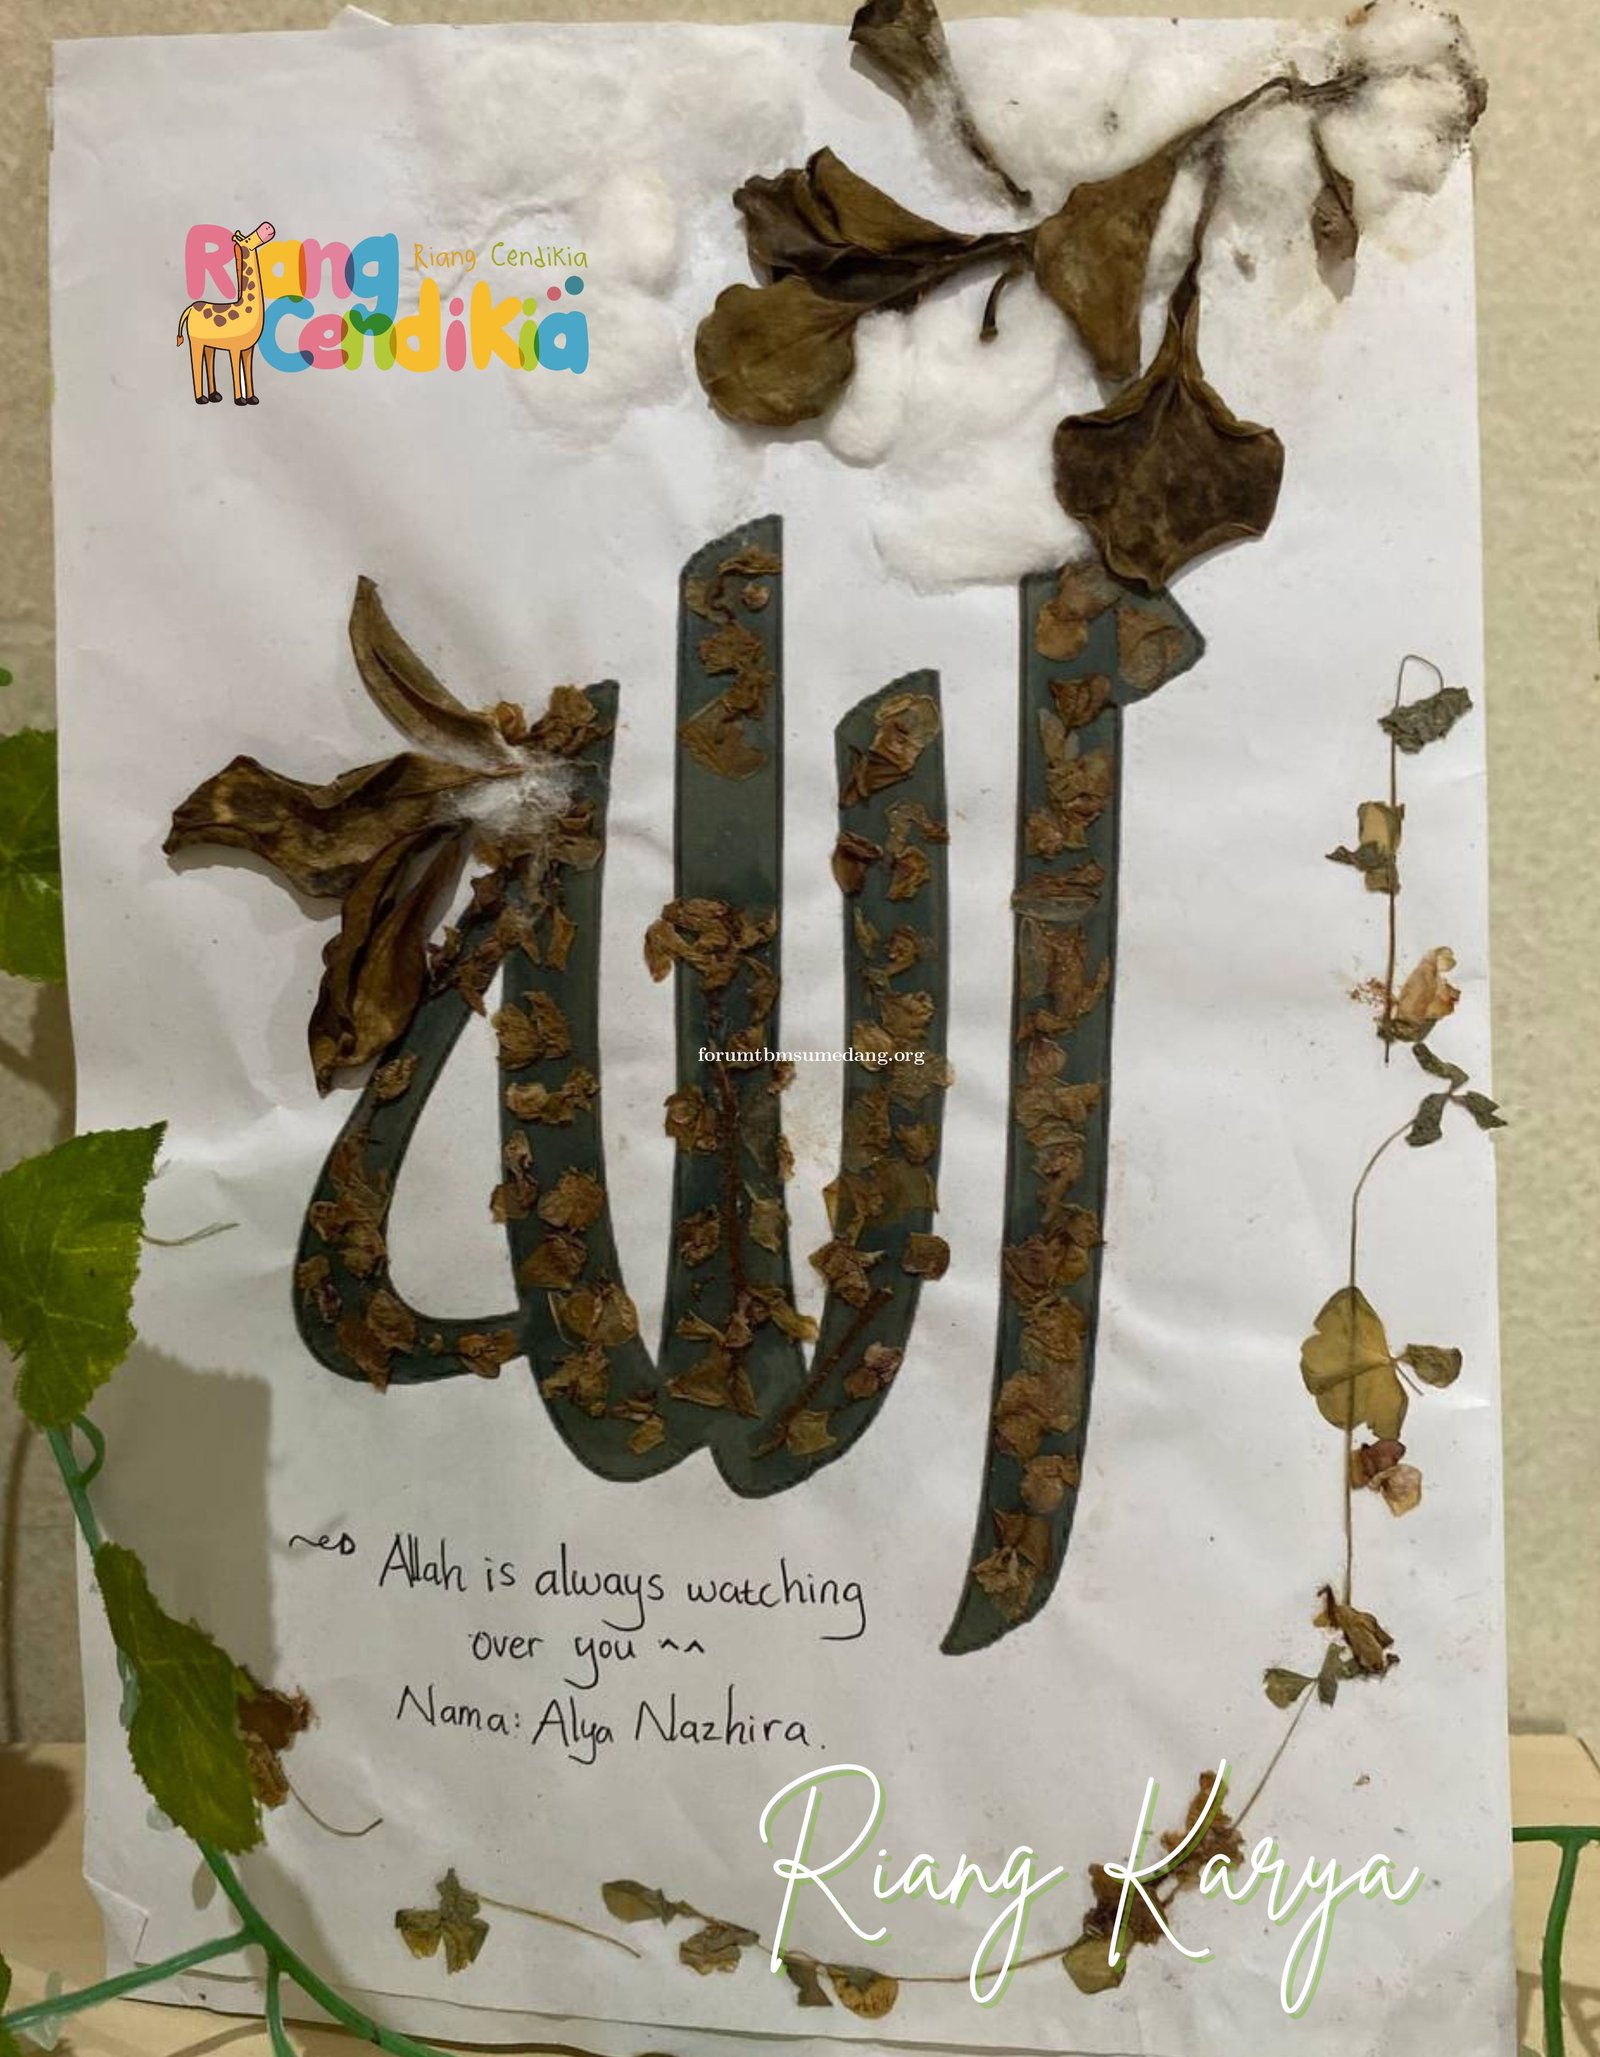 Riang
Cendikia
Riang Cendikia
الله
forumtbmsumedang.org
Allah is always watching
over you ^^
Nama: Alya Nazhira.
Riang Karya